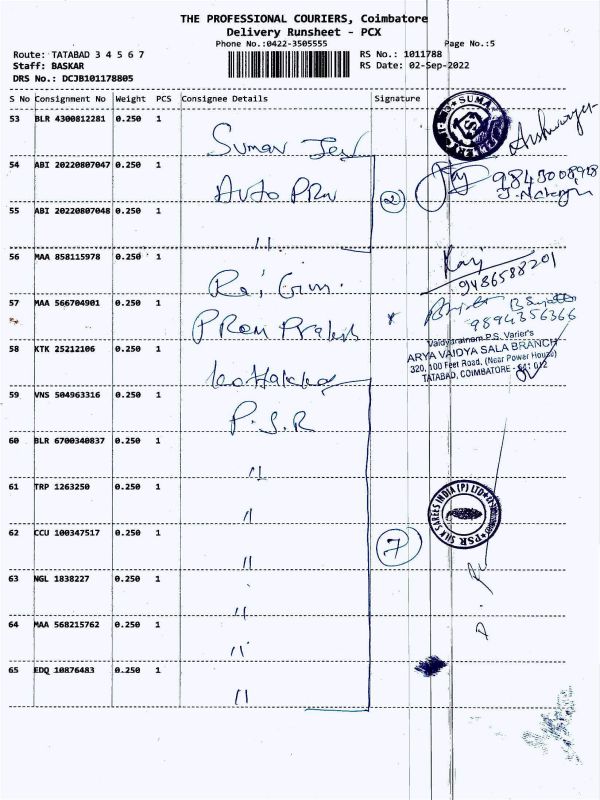 THE PROFESSIONAL COURIERS, Coimbatore
Delivery Runsheet - PCX
Phone No.:0422-3505555
Page No.:5
Route: TATABAD 3 4 5 6 7
RS No.: 1011788
Staff: BASKAR
RS Date: 02-Sep-2022
DRS No.: DCJB101178805
S No Consignment No Weight PCS Consignee Details Signature
53 BLR 4300812281 0.250 1
SUMA
54 ABI 20220807047 0.250 1
Auto PRM
2
55 ABI 20220807048 0.250 1
"
56 MAA 858115978 0.250 1
9486588201
57 MAA 566704901 0.250 1
9894356366
Vaidyaratnam P.S. Varier's
ARYA VAIDYA SALA BRANCH
320, 100 Feet Road, (Near Power House)
TATABAD, COIMBATORE - 641 012
58 KTK 25212106 0.250 1
59 VNS 504963316 0.250 1
P.S.R
60 BLR 6700340837 0.250 1
"
61 TRP 1263250 0.250 1
"
PSR SILK SAREES INDIA (P) LTD
62 CCU 100347517 0.250 1
"
7
63 NGL 1838227 0.250 1
"
64 MAA 568215762 0.250 1
"
65 EDQ 10876483 0.250 1
"